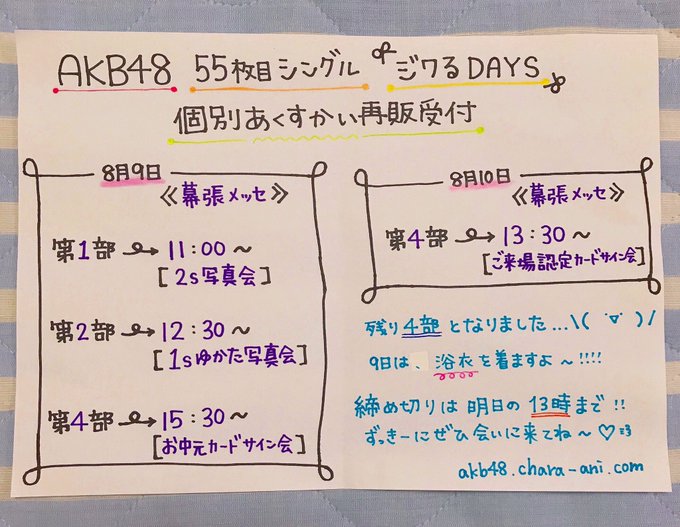 AKB48 55枚目シングル『ジワるDAYS』
個別あくすかい再販受付
8月9日
≪幕張メッセ≫
第1部→11:00~
[2s写真会]
第2部→12:30~
[1sゆかた写真会]
第4部→15:30~
[お中元カードサイン会]
8月10日
≪幕張メッセ≫
第4部→13:30~
[ご来場認定カードサイン会]
残り4部となりました...\( ˙▿˙ )/
9日は、浴衣を着ますよ~!!!!
締め切りは明日の13時まで!!
ずっきーにぜひ会いに来てね~♡
akb48.chara-ani.com